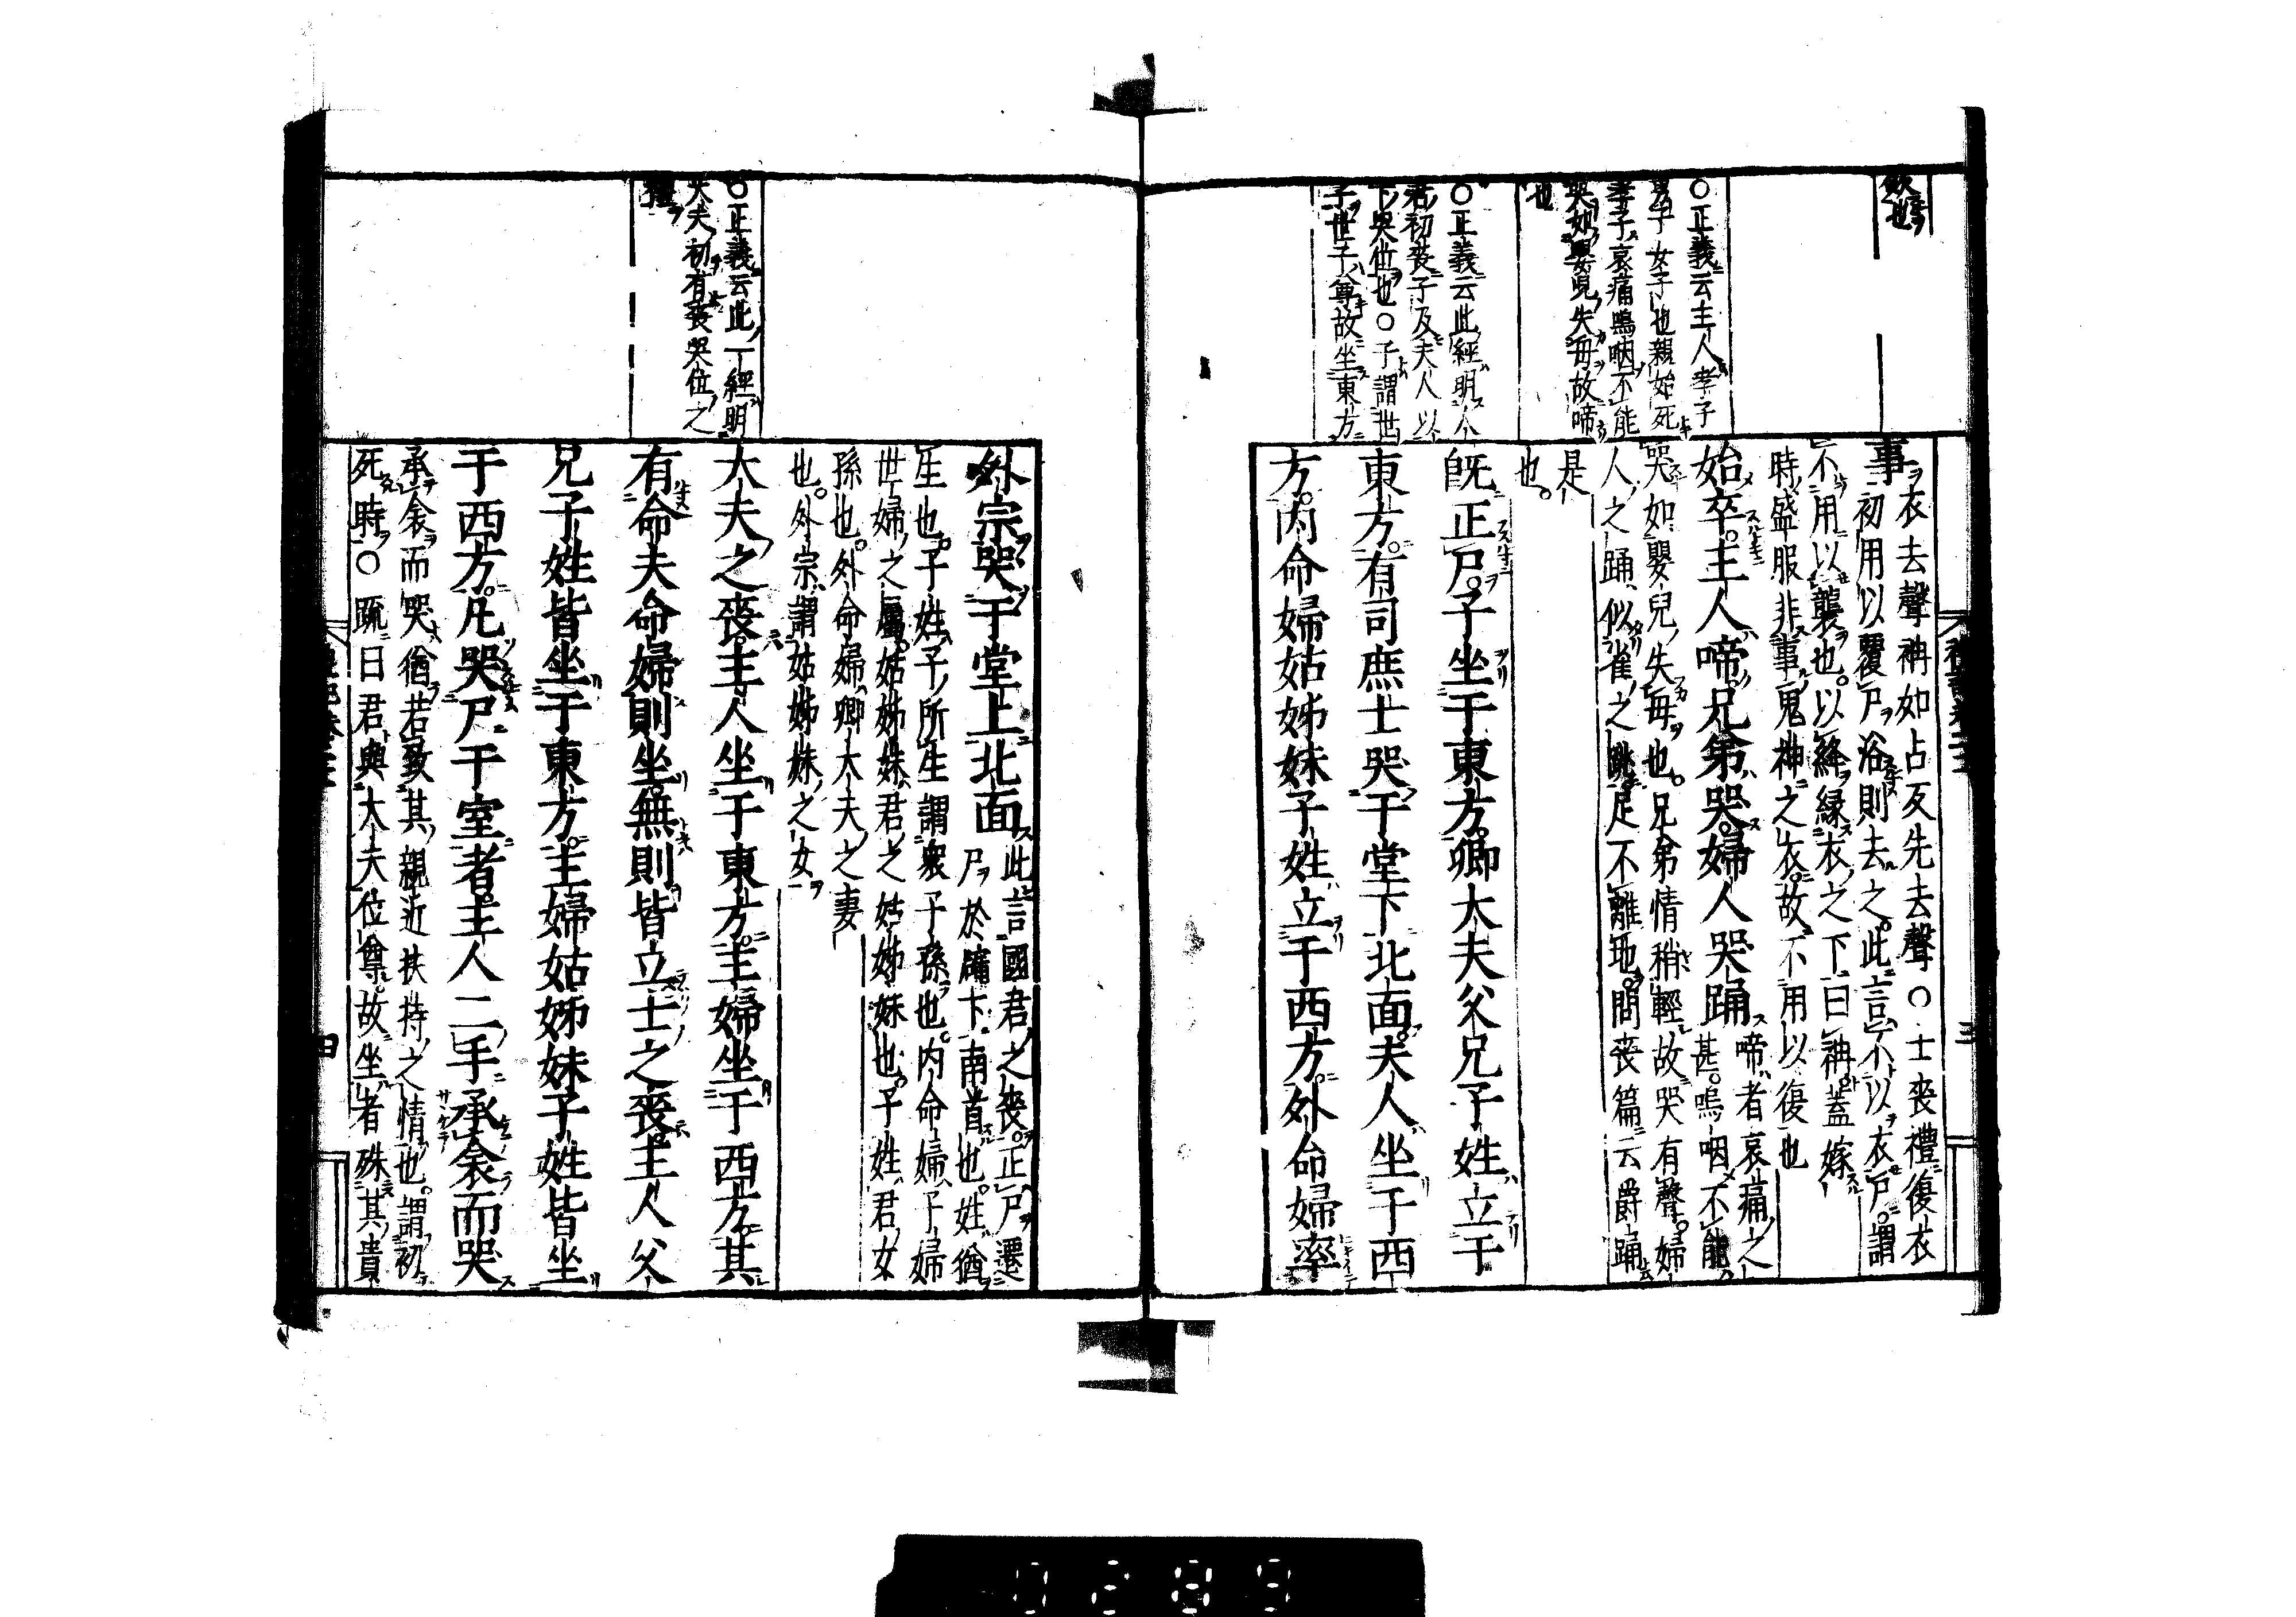 歟也
○正義云主人孝子
男子女子也親始死
孝子哀痛嗚咽不能
哭如嬰兒失母故啼
也
○正義云此經明人
君初喪子及夫人以
下哭位也○子謂世
子世子尊故坐東方
事衣去聲袡如占反先去聲○士喪禮復衣
初用以覆尸浴則去之此言不以衣尸謂
不用以襲也以絳緣衣之下曰袡蓋嫁
時盛服非事鬼神之衣故不用以復也
始卒主人啼兄弟哭婦人哭踊啼者哀痛之
甚嗚咽不能
哭如嬰兒失母也兄弟情稍輕故哭有聲婦
人之踊似雀之跳足不離地問喪篇云爵踊
是
也
既正尸子坐于東方卿大夫父兄子姓立于
東方有司庶士哭于堂下北面夫人坐于西
方內命婦姑姊妹子姓立于西方外命婦率
三
○正義云此一經明
大夫初有喪哭位之
禮
外宗哭于堂上北面此言國君之喪正尸遷
尸於牖下南首也姓猶
生也子姓子所生謂衆子孫也內命婦子婦
世婦之屬姑姊妹君之姑姊妹也子姓君女
孫也外命婦卿大夫之妻
也外宗謂姑姊妹之女
大夫之喪主人坐于東方主婦坐于西方其
有命夫命婦則坐無則皆立士之喪主人父
兄子姓皆坐于東方主婦姑姊妹子姓皆坐
于西方凡哭尸于室者主人二手承衾而哭
承衾而哭猶若致其親近扶持之情也謂初
死時○疏曰君與大夫位尊故坐者殊其貴
四